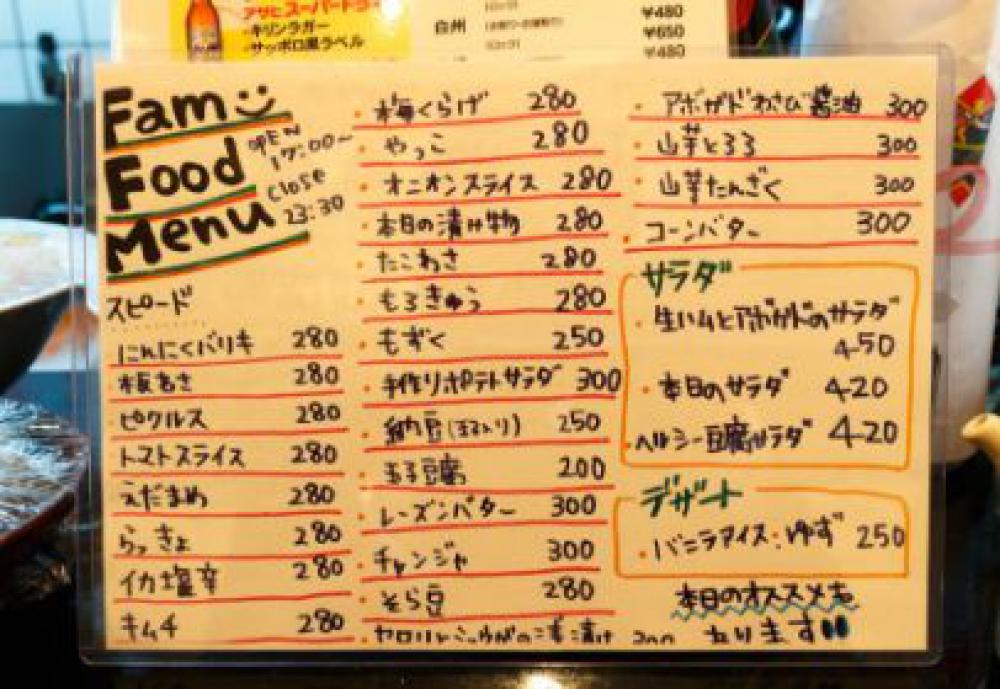 アサヒスーパードライ
・キリンラガー
・サッポロ黒ラベル
白州
¥480
¥650
¥480
Fam
Food
Menu
OPEN
17:00~
Close
23:30
スピード
にんにくバリキ 280
板わさ 280
ピクルス 280
トマトスライス 280
えだまめ 280
らっきょ 280
イカ塩辛 280
キムチ 280
・梅くらげ 280
・やっこ 280
・オニオンスライス 280
・本日の漬け物 280
・たこわさ 280
・もろきゅう 280
・もずく 250
・手作りポテトサラダ 300
・納豆 250
・玉子豆腐 200
・レーズンバター 300
・チャンジャ 300
・そら豆 280
・アボガドわさび醤油 300
・山芋とろろ 300
・山芋たんざく 300
・コーンバター 300
サラダ
・生ハムとアボガドのサラダ
450
・本日のサラダ 420
・ヘルシー豆腐サラダ 420
デザート
・バニラアイス・ゆず 250
本日のオススメも
あります!!